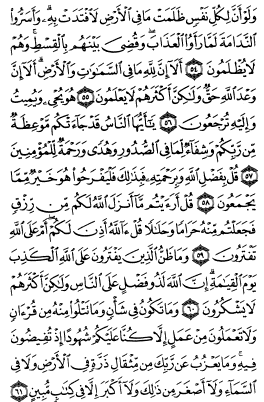 وَلَوْ أَنَّ لِكُلِّ نَفْسٍ ظَلَمَتْ مَا فِى ٱلْأَرْضِ لَٱفْتَدَتْ بِهِۦ وَأَسَرُّوا۟
ٱلنَّدَامَةَ لَمَّا رَأَوُا۟ ٱلْعَذَابَ وَقُضِىَ بَيْنَهُم بِٱلْقِسْطِ وَهُمْ
لَا يُظْلَمُونَ ٥٤ أَلَآ إِنَّ لِلَّهِ مَا فِى ٱلسَّمَٰوَٰتِ وَٱلْأَرْضِ أَلَآ إِنَّ
وَعْدَ ٱللَّهِ حَقٌّ وَلَٰكِنَّ أَكْثَرَهُمْ لَا يَعْلَمُونَ ٥٥ هُوَ يُحْىِۦ وَيُمِيتُ
وَإِلَيْهِ تُرْجَعُونَ ٥٦ يَٰٓأَيُّهَا ٱلنَّاسُ قَدْ جَآءَتْكُم مَّوْعِظَةٌ
مِّن رَّبِّكُمْ وَشِفَآءٌ لِّمَا فِى ٱلصُّدُورِ وَهُدًى وَرَحْمَةٌ لِّلْمُؤْمِنِينَ
٥٧ قُلْ بِفَضْلِ ٱللَّهِ وَبِرَحْمَتِهِۦ فَبِذَٰلِكَ فَلْيَفْرَحُوا۟ هُوَ خَيْرٌ مِّمَّا
يَجْمَعُونَ ٥٨ قُلْ أَرَءَيْتُم مَّآ أَنزَلَ ٱللَّهُ لَكُم مِّن رِّزْقٍ
فَجَعَلْتُم مِّنْهُ حَرَامًا وَحَلَٰلًا قُلْ ءَآللَّهُ أَذِنَ لَكُمْ أَمْ عَلَى ٱللَّهِ
تَفْتَرُونَ ٥٩ وَمَا ظَنُّ ٱلَّذِينَ يَفْتَرُونَ عَلَى ٱللَّهِ ٱلْكَذِبَ
يَوْمَ ٱلْقِيَٰمَةِ إِنَّ ٱللَّهَ لَذُو فَضْلٍ عَلَى ٱلنَّاسِ وَلَٰكِنَّ أَكْثَرَهُمْ
لَا يَشْكُرُونَ ٦٠ وَمَا تَكُونُ فِى شَأْنٍ وَمَا تَتْلُوا۟ مِنْهُ مِن قُرْءَانٍ
وَلَا تَعْمَلُونَ مِنْ عَمَلٍ إِلَّا كُنَّا عَلَيْكُمْ شُهُودًا إِذْ تُفِيضُونَ
فِيهِ وَمَا يَعْزُبُ عَن رَّبِّكَ مِن مِّثْقَالِ ذَرَّةٍ فِى ٱلْأَرْضِ وَلَا فِى
ٱلسَّمَآءِ وَلَآ أَصْغَرَ مِن ذَٰلِكَ وَلَآ أَكْبَرَ إِلَّا فِى كِتَٰبٍ مُّبِينٍ ٦١